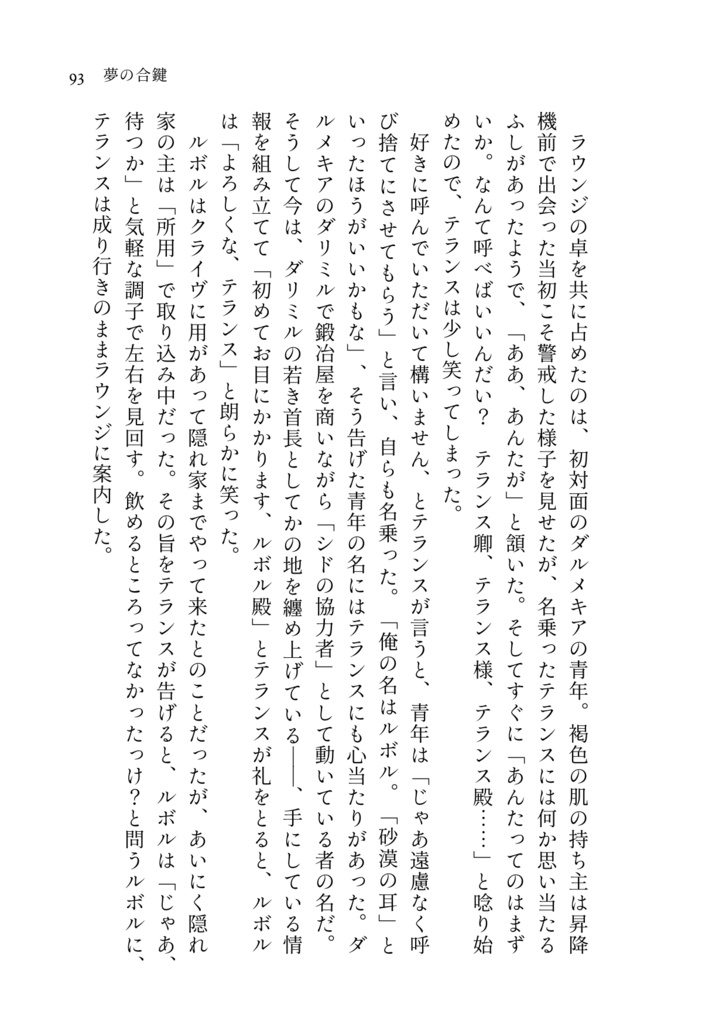 93 夢の合鍵
ラウンジの卓を共に占めたのは、初対面のダルメキアの青年。褐色の肌の持ち主は昇降
機前で出会った当初こそ警戒した様子を見せたが、名乗ったテランスには何か思い当たる
ふしがあったようで、「ああ、あんたが」と頷いた。そしてすぐに「あんたってのはまず
いか。なんて呼べばいいんだい？　テランス卿、テランス様、テランス殿……」と唸り始
めたので、テランスは少し笑ってしまった。
好きに呼んでいただいて構いません、とテランスが言うと、青年は「じゃあ遠慮なく呼
び捨てにさせてもらう」と言い、自らも名乗った。「俺の名はルボル。「砂漠の耳」と
いったほうがいいかもな」、そう告げた青年の名にはテランスにも心当たりがあった。ダ
ルメキアのダリミルで鍛冶屋を商いながら「シドの協力者」として動いている者の名だ。
そうして今は、ダリミルの若き首長としてかの地を纏め上げている――、手にしている情
報を組み立てて「初めてお目にかかります、ルボル殿」とテランスが礼をとると、ルボル
は「よろしくな、テランス」と朗らかに笑った。
ルボルはクライヴに用があって隠れ家までやって来たとのことだったが、あいにく隠れ
家の主は「所用」で取り込み中だった。その旨をテランスが告げると、ルボルは「じゃあ、
待つか」と気軽な調子で左右を見回す。飲めるところってなかったっけ？と問うルボルに、
テランスは成り行きのままラウンジに案内した。